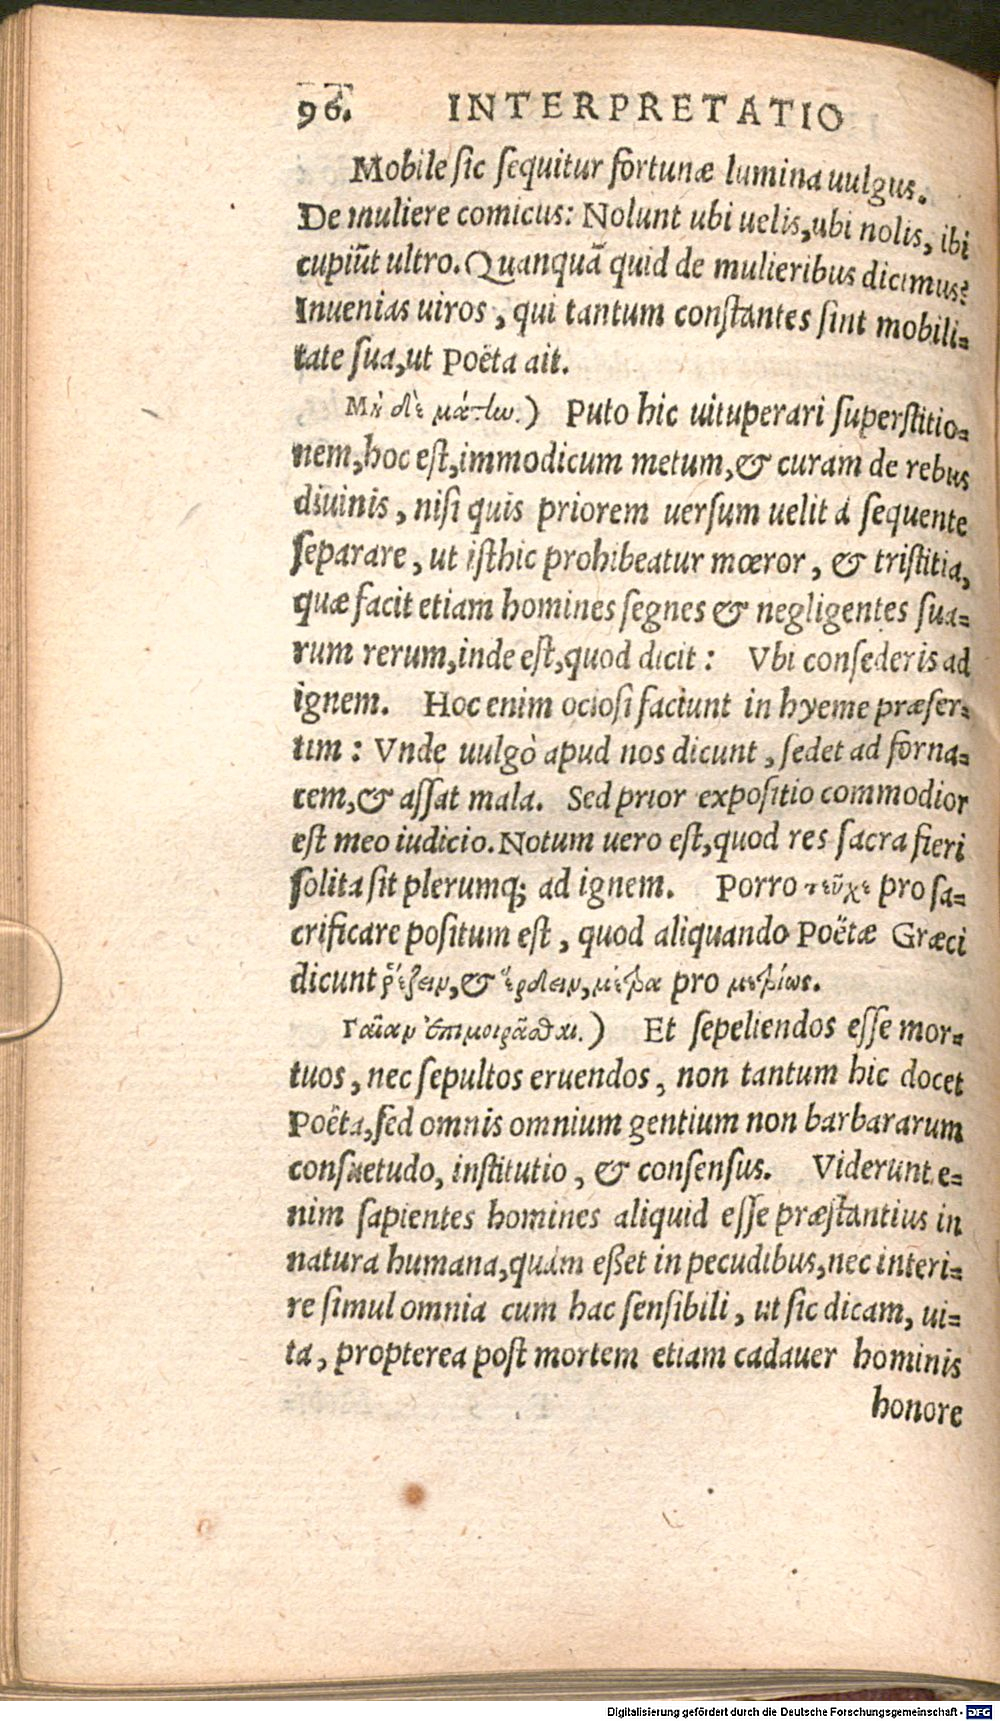 96. INTERPRETATIO
Mobile sic sequitur fortunæ lumina uulgus.
De muliere comicus: Nolunt ubi uelis, ubi nolis, ibi
cupiūt ultro. Quanquā quid de mulieribus dicimus?
Inuenias uiros, qui tantum constantes sint mobili-
tate sua, ut Poëta ait.
Μὴ δὲ μάτἰω.) Puto hic uituperari superstitio-
nem, hoc est, immodicum metum, & curam de rebus
diuinis, nisi quis priorem uersum uelit à sequente
separare, ut isthic prohibeatur mœror, & tristitia,
quæ facit etiam homines segnes & negligentes sua-
rum rerum, inde est, quod dicit: Vbi consederis ad
ignem. Hoc enim ociosi faciunt in hyeme præser-
tim: Vnde uulgò apud nos dicunt, sedet ad forna-
cem, & assat mala. Sed prior expositio commodior
est meo iudicio. Notum uero est, quod res sacra fieri
solita sit plerumq; ad ignem. Porro τεῦχε pro sa-
crificare positum est, quod aliquando Poëtæ Græci
dicunt ῥέζειν, & ἔρδειν, μέτρα pro μετρίως.
Γαῖαν ἐπιμοιρᾶσθαι.) Et sepeliendos esse mor-
tuos, nec sepultos eruendos, non tantum hic docet
Poëta, sed omnis omnium gentium non barbararum
consuetudo, institutio, & consensus. Viderunt e-
nim sapientes homines aliquid esse præstantius in
natura humana, quàm esset in pecudibus, nec interi-
re simul omnia cum hac sensibili, ut sic dicam, ui-
ta, propterea post mortem etiam cadauer hominis
honore
Digitalisierung gefördert durch die Deutsche Forschungsgemeinschaft - DFG